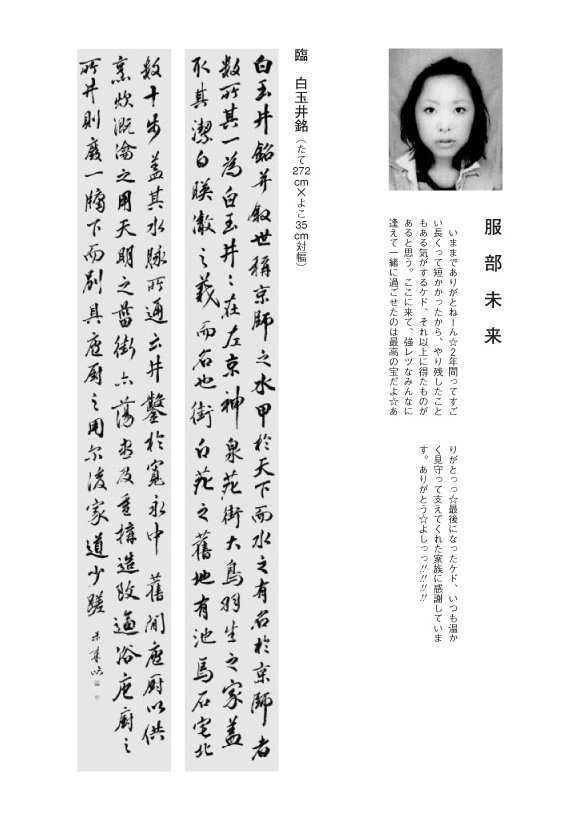 服部未来
いままでありがとねーん☆2年間ってすご
い長くって短かかったから、やり残したこと
もある気がするケド、それ以上に得たものが
あると思う。ここに来て、強レツなみんなに
逢えて一緒に過ごせたのは最高の宝だよ☆あ
りがとっっ☆最後になったケド、いつも温か
く見守って支えてくれた家族に感謝していま
す。ありがとう☆よしっっ!!!!!!!!
臨　白玉井銘（たて272cm×よこ35cm対幅）
白玉井銘并叙世稱京師之水甲於天下而水之有名於京師者
数所其一為白玉井々在左京神泉苑街大鳥羽生之家蓋
取其潔白瑛澈之義而名也街白苑之舊地有池馬石宅北
数十步蓋其水脉所通云井鑿於寛永中舊閒庖厨以供
烹炊溉瀹之用天明之菑街亦蕩盡及重構造改適浴庖厨之
所井則廢一牖下而別具庖厨之用尓後家道少蹉
未来臨